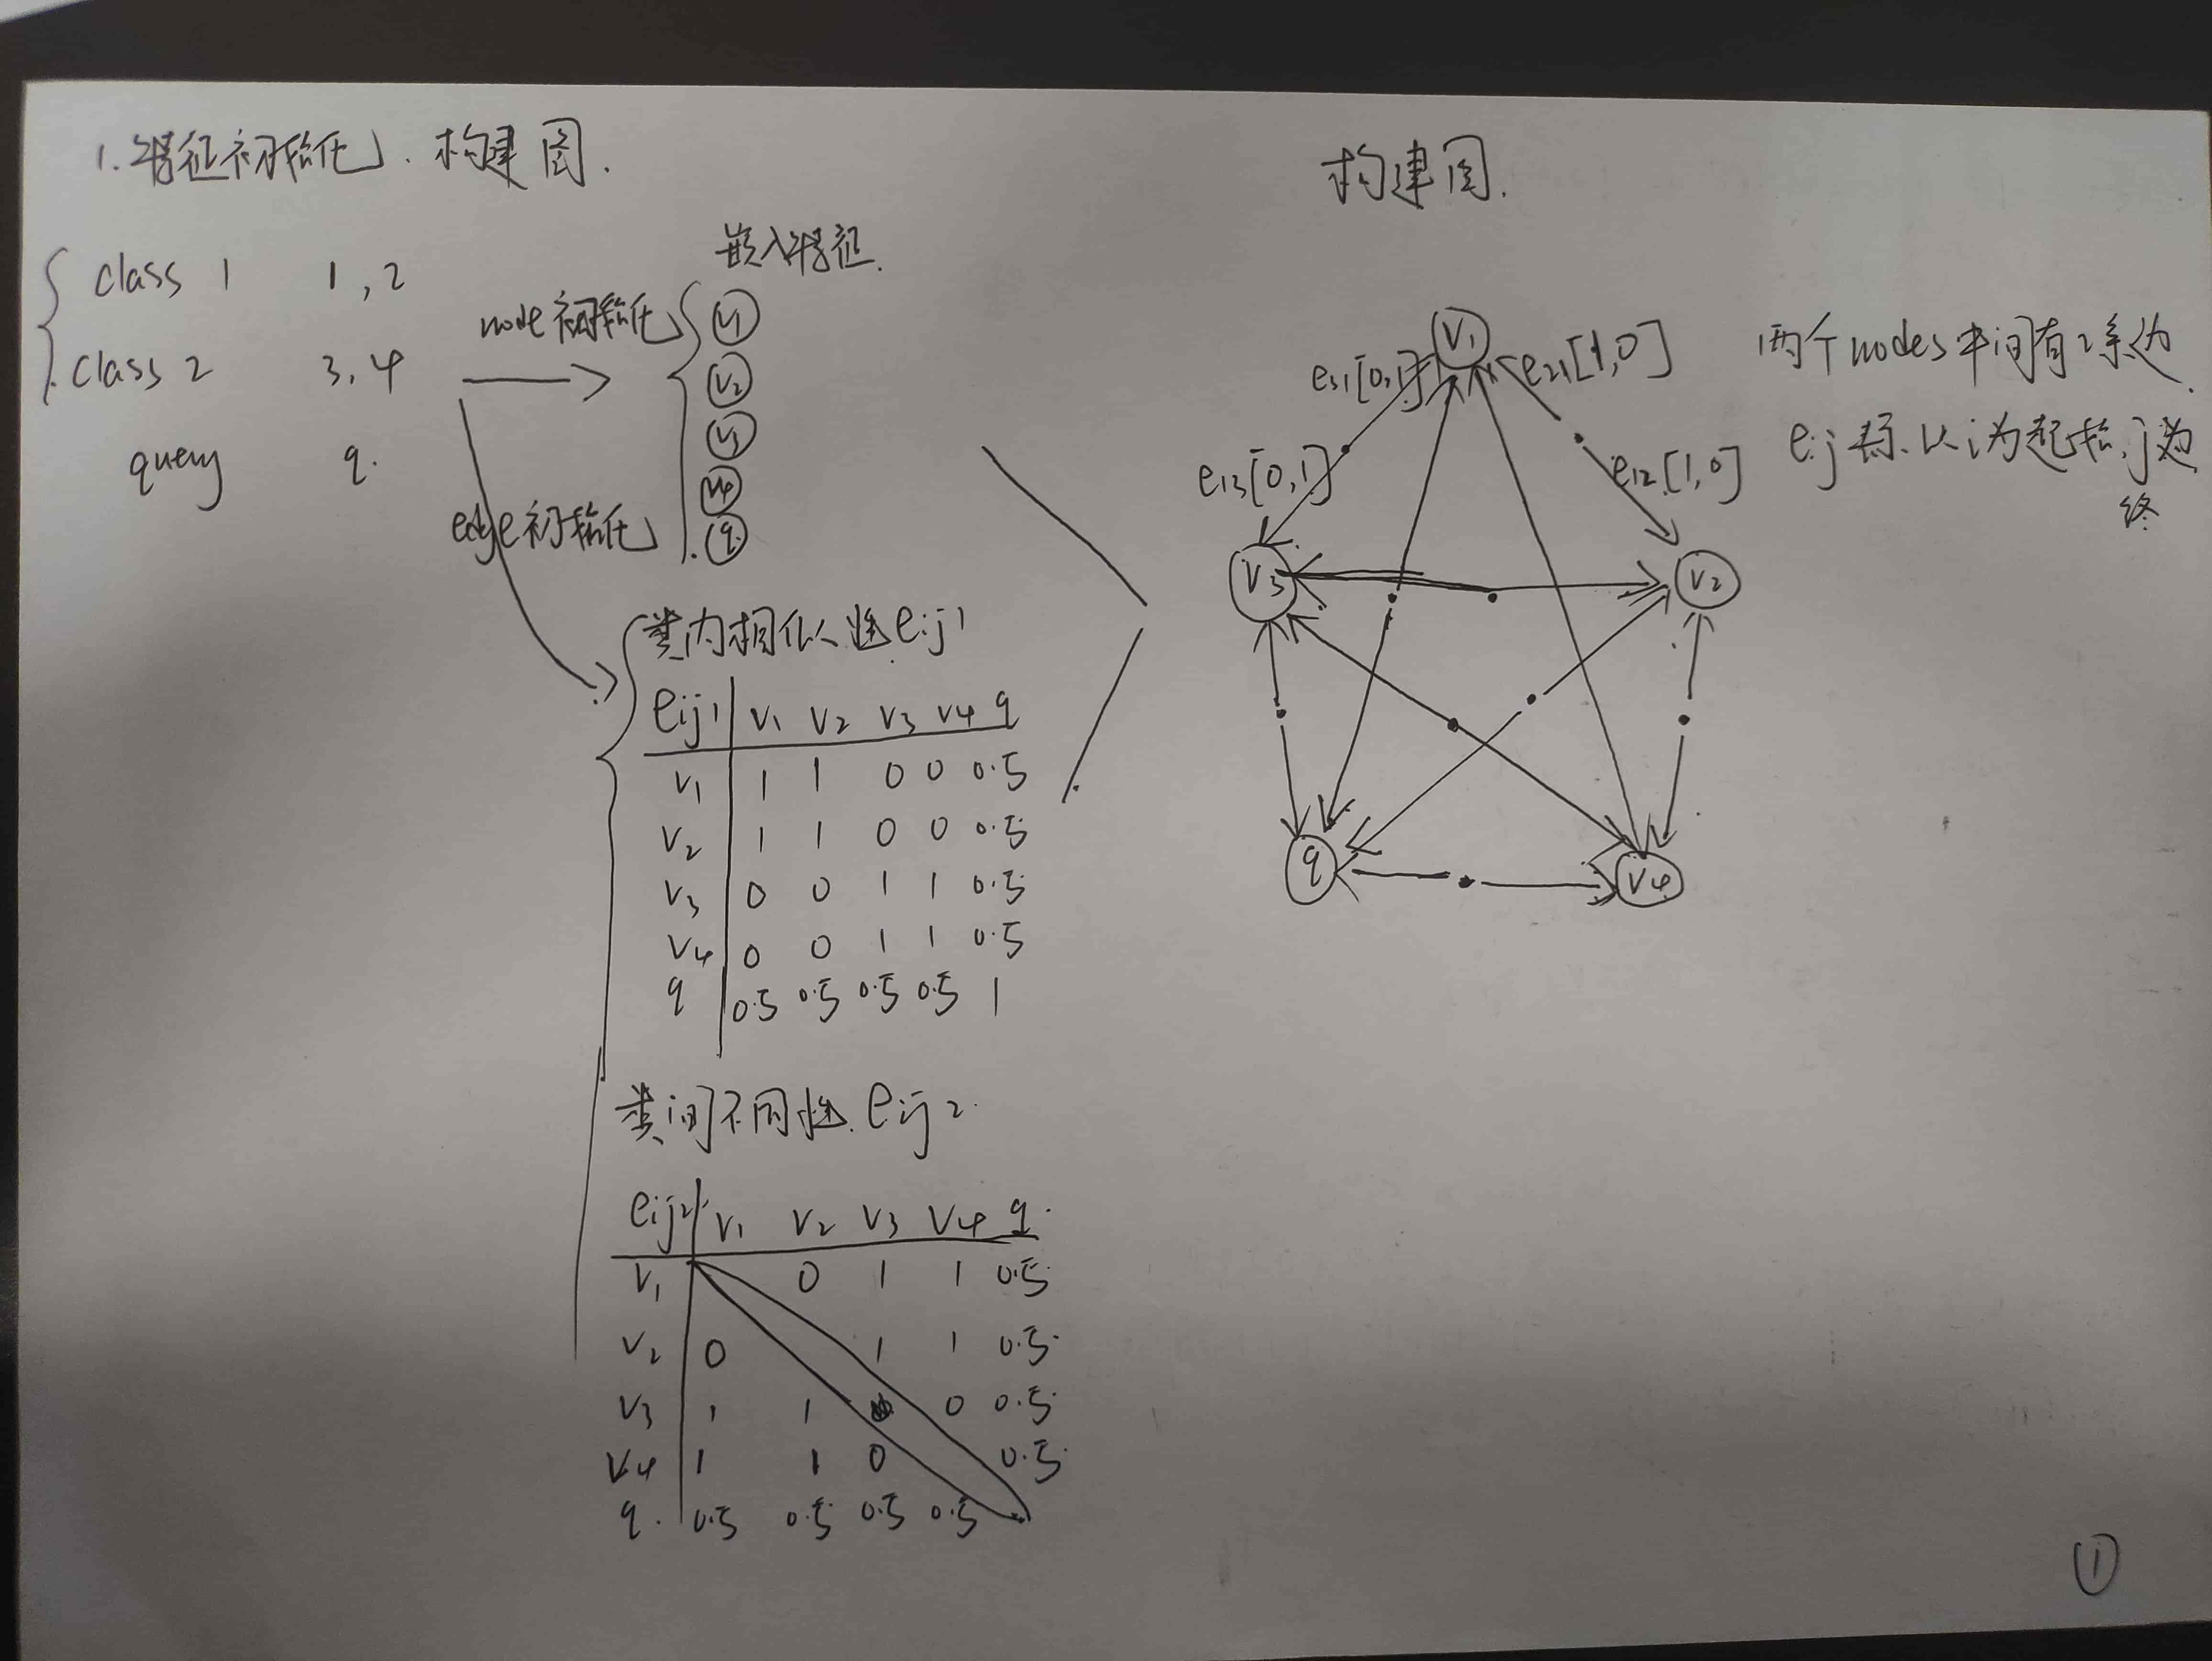 1. 特征初始化. 构建图.
class 1 1, 2
class 2 3, 4
query q.
node 初始化
edge 初始化
嵌入特征.
V1
V2
V3
V4
q
类内相似性 eij1
eij1 V1 V2 V3 V4 q
V1 1 1 0 0 0.5
V2 1 1 0 0 0.5
V3 0 0 1 1 0.5
V4 0 0 1 1 0.5
q 0.5 0.5 0.5 0.5 1
类间不同性. eij2.
eij2 V1 V2 V3 V4 q.
V1 0 1 1 0.5
V2 0 1 1 0.5
V3 1 1 0 0.5
V4 1 1 0 0.5
q. 0.5 0.5 0.5 0.5
构建图.
V1
e31[0,1]
e21[1,0]
e13[0,1]
e12[1,0]
V3
V2
q
V4
两个nodes中间有2条边.
eij 表示以i为起始, j为
终
①